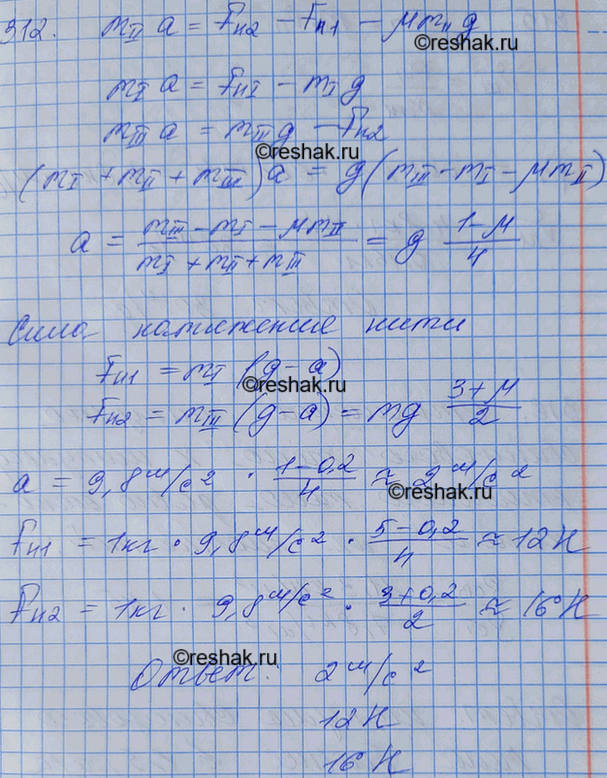 312. m_II a = F_н2 - F_н1 - μm_II g
©reshak.ru
m_I a = F_нI - m_I g
m_III a = m_III g - F_н2
©reshak.ru
(m_I + m_II + m_III)a = g(m_III - m_I - μm_II)
a = (m_III - m_I - μm_II)/(m_I + m_II + m_III) = g (1-μ)/4
Сила натяжения нити
F_н1 = m_I (g-a)
©reshak.ru
F_н2 = m_III (g-a) = mg (3+μ)/2
a = 9,8 м/с² · (1-0,2)/4 ≈ 2 м/с²
©reshak.ru
F_н1 = 1кг · 9,8 м/с² · (5-0,2)/4 ≈ 12 Н
F_н2 = 1кг · 9,8 м/с² · (3+0,2)/2 ≈ 16 Н
©reshak.ru
Ответ: 2 м/с²
12 Н
16 Н